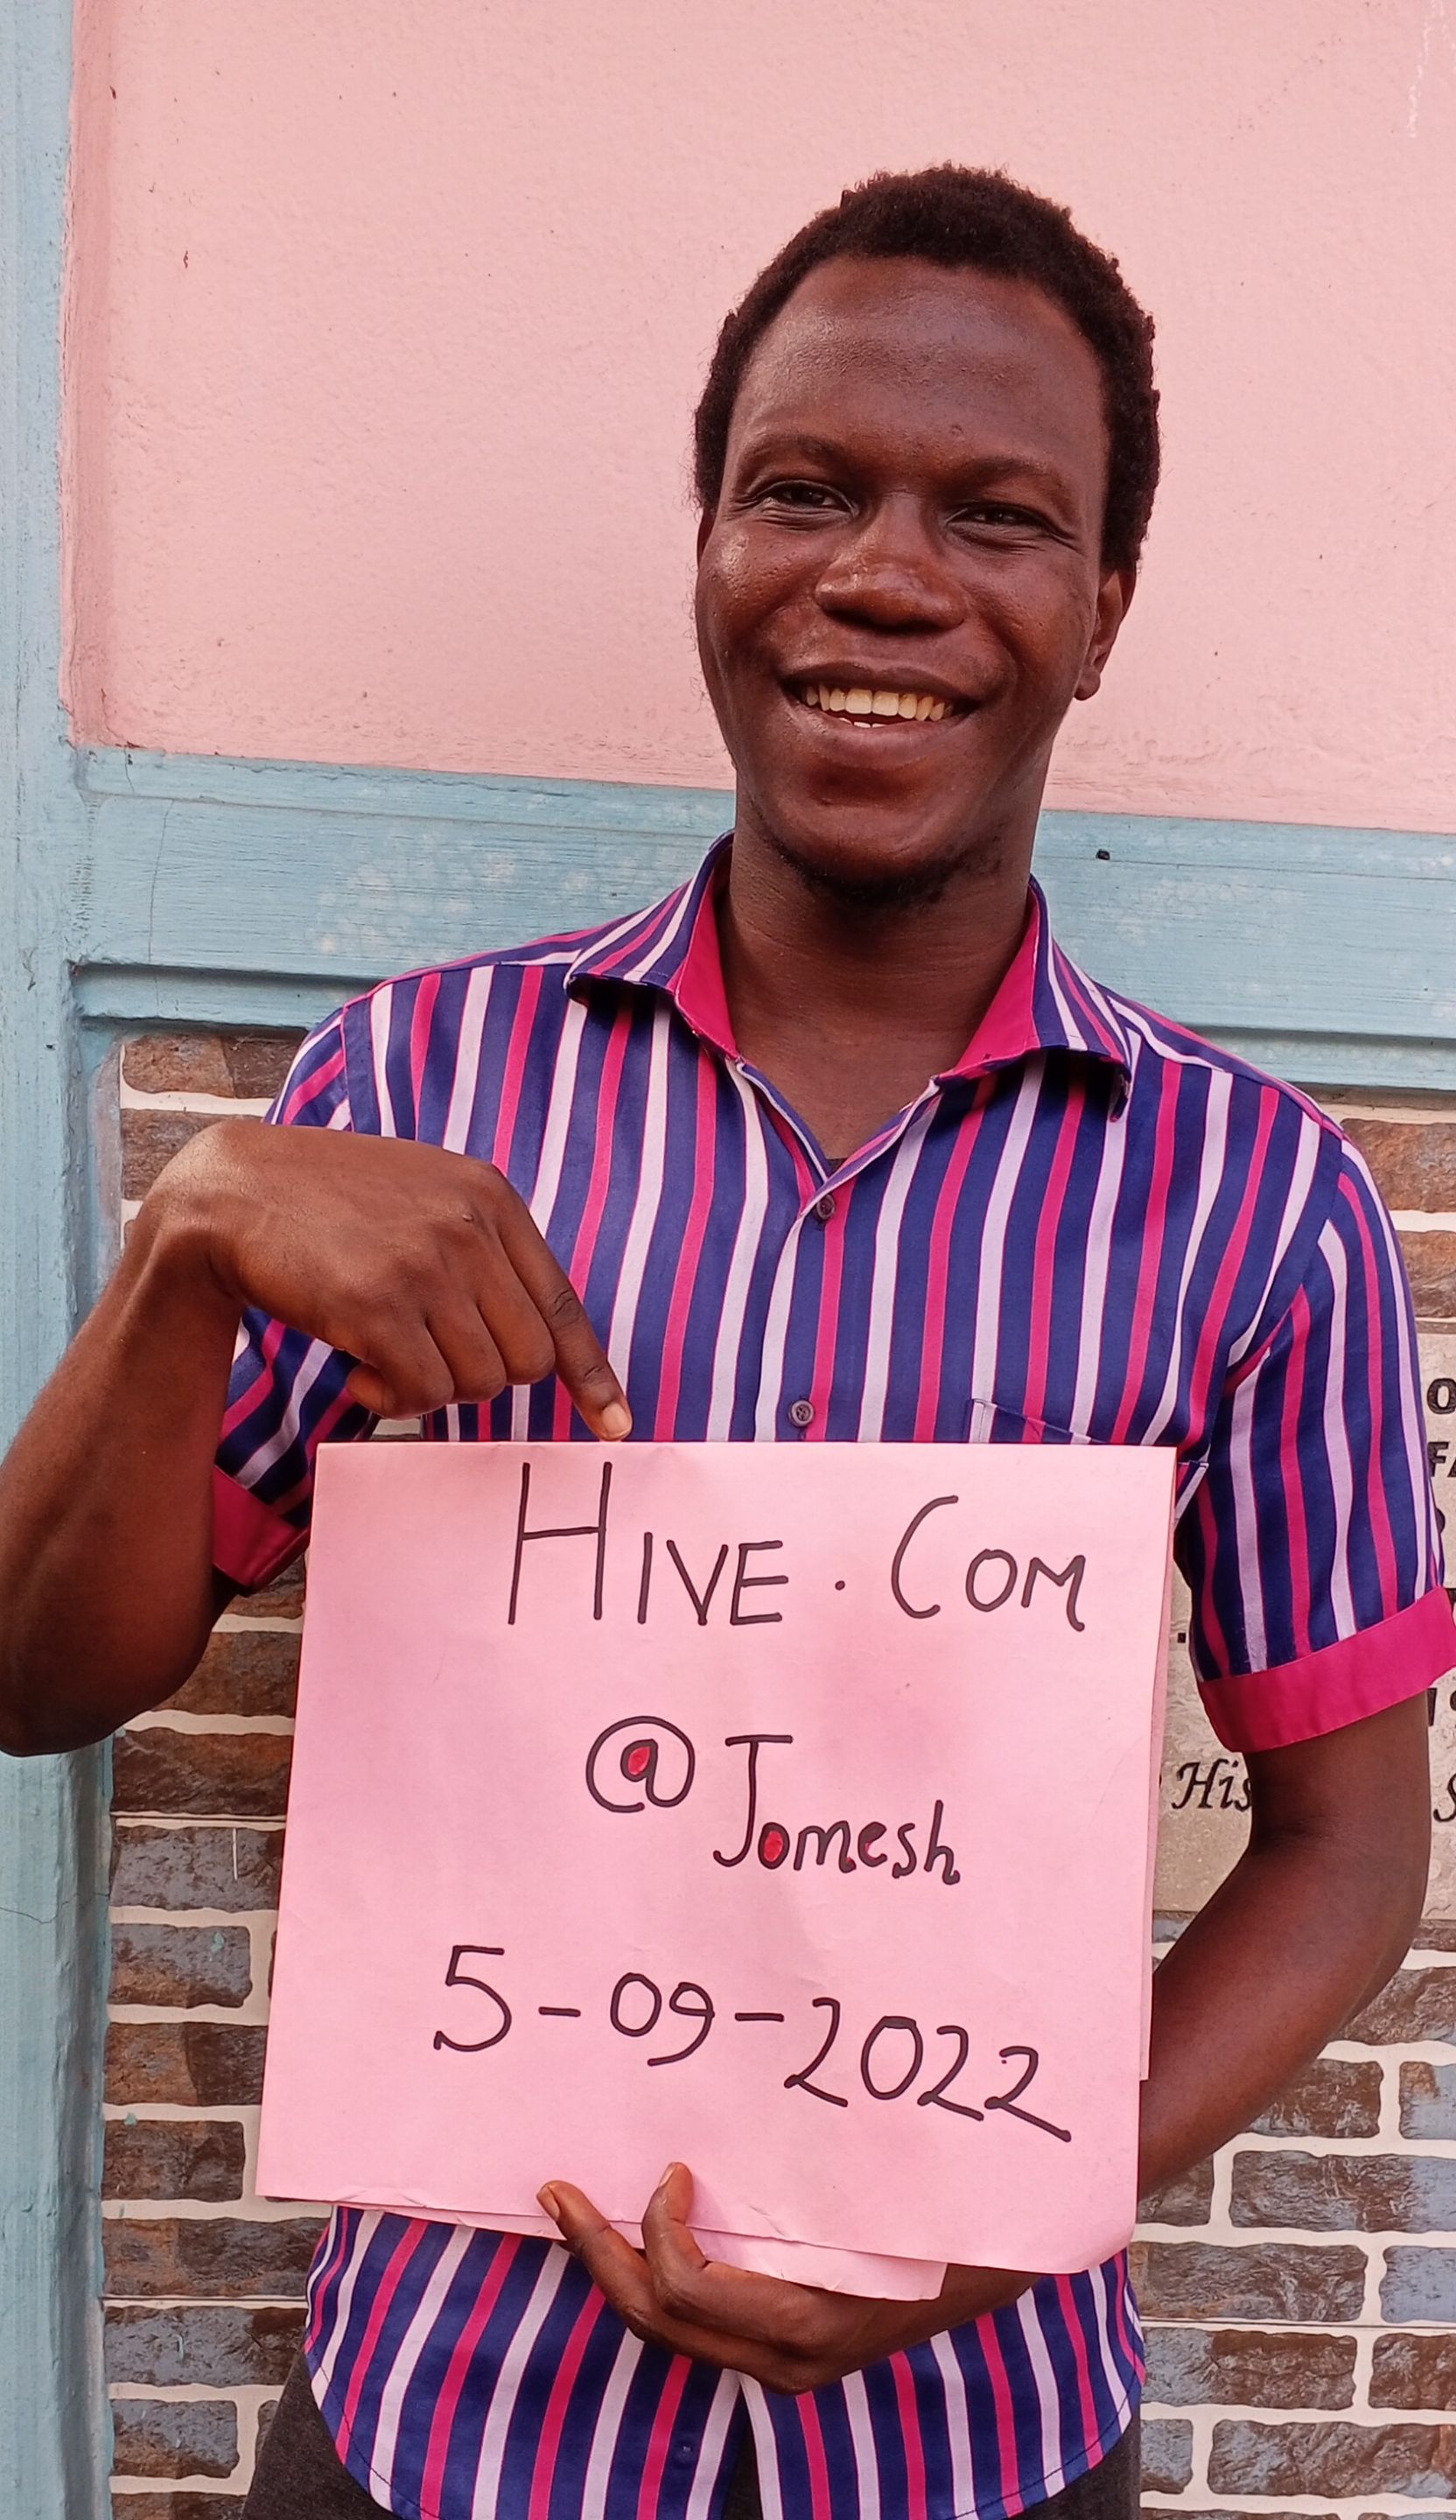 HIVE.COM
@Jomesh
5-09-2022
His